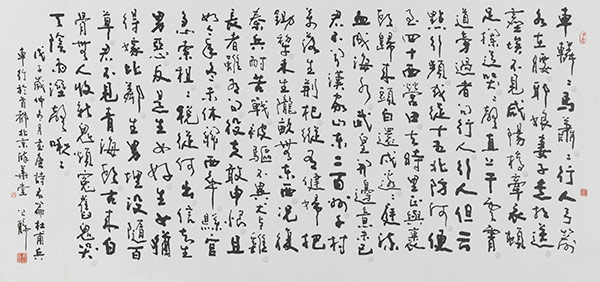 車轔轔馬蕭蕭行人弓箭
各在腰耶娘妻子走相送
塵埃不見咸陽橋牽衣頓
足攔道哭哭聲直上干雲霄
道旁過者問行人行人但云
點行頻或從十五北防河便
至四十西營田去時里正與裹
頭歸來頭白還戍邊邊庭流
血成海水武皇開邊意未已
君不聞漢家山東二百州千村
萬落生荊杞縱有健婦把
鋤犁禾生隴畝無東西況復
秦兵耐苦戰被驅不異犬與雞
長者雖有問役夫敢申恨且
如今年冬未休關西卒縣官
急索租租稅從何出信知生
男惡反是生女好生女猶
得嫁比鄰生男埋沒隨百
草君不見青海頭古來白
骨無人收新鬼煩冤舊鬼哭
天陰雨濕聲啾啾
戊子歲仲冬月書唐詩名篇杜甫兵
車行於首都北京堂